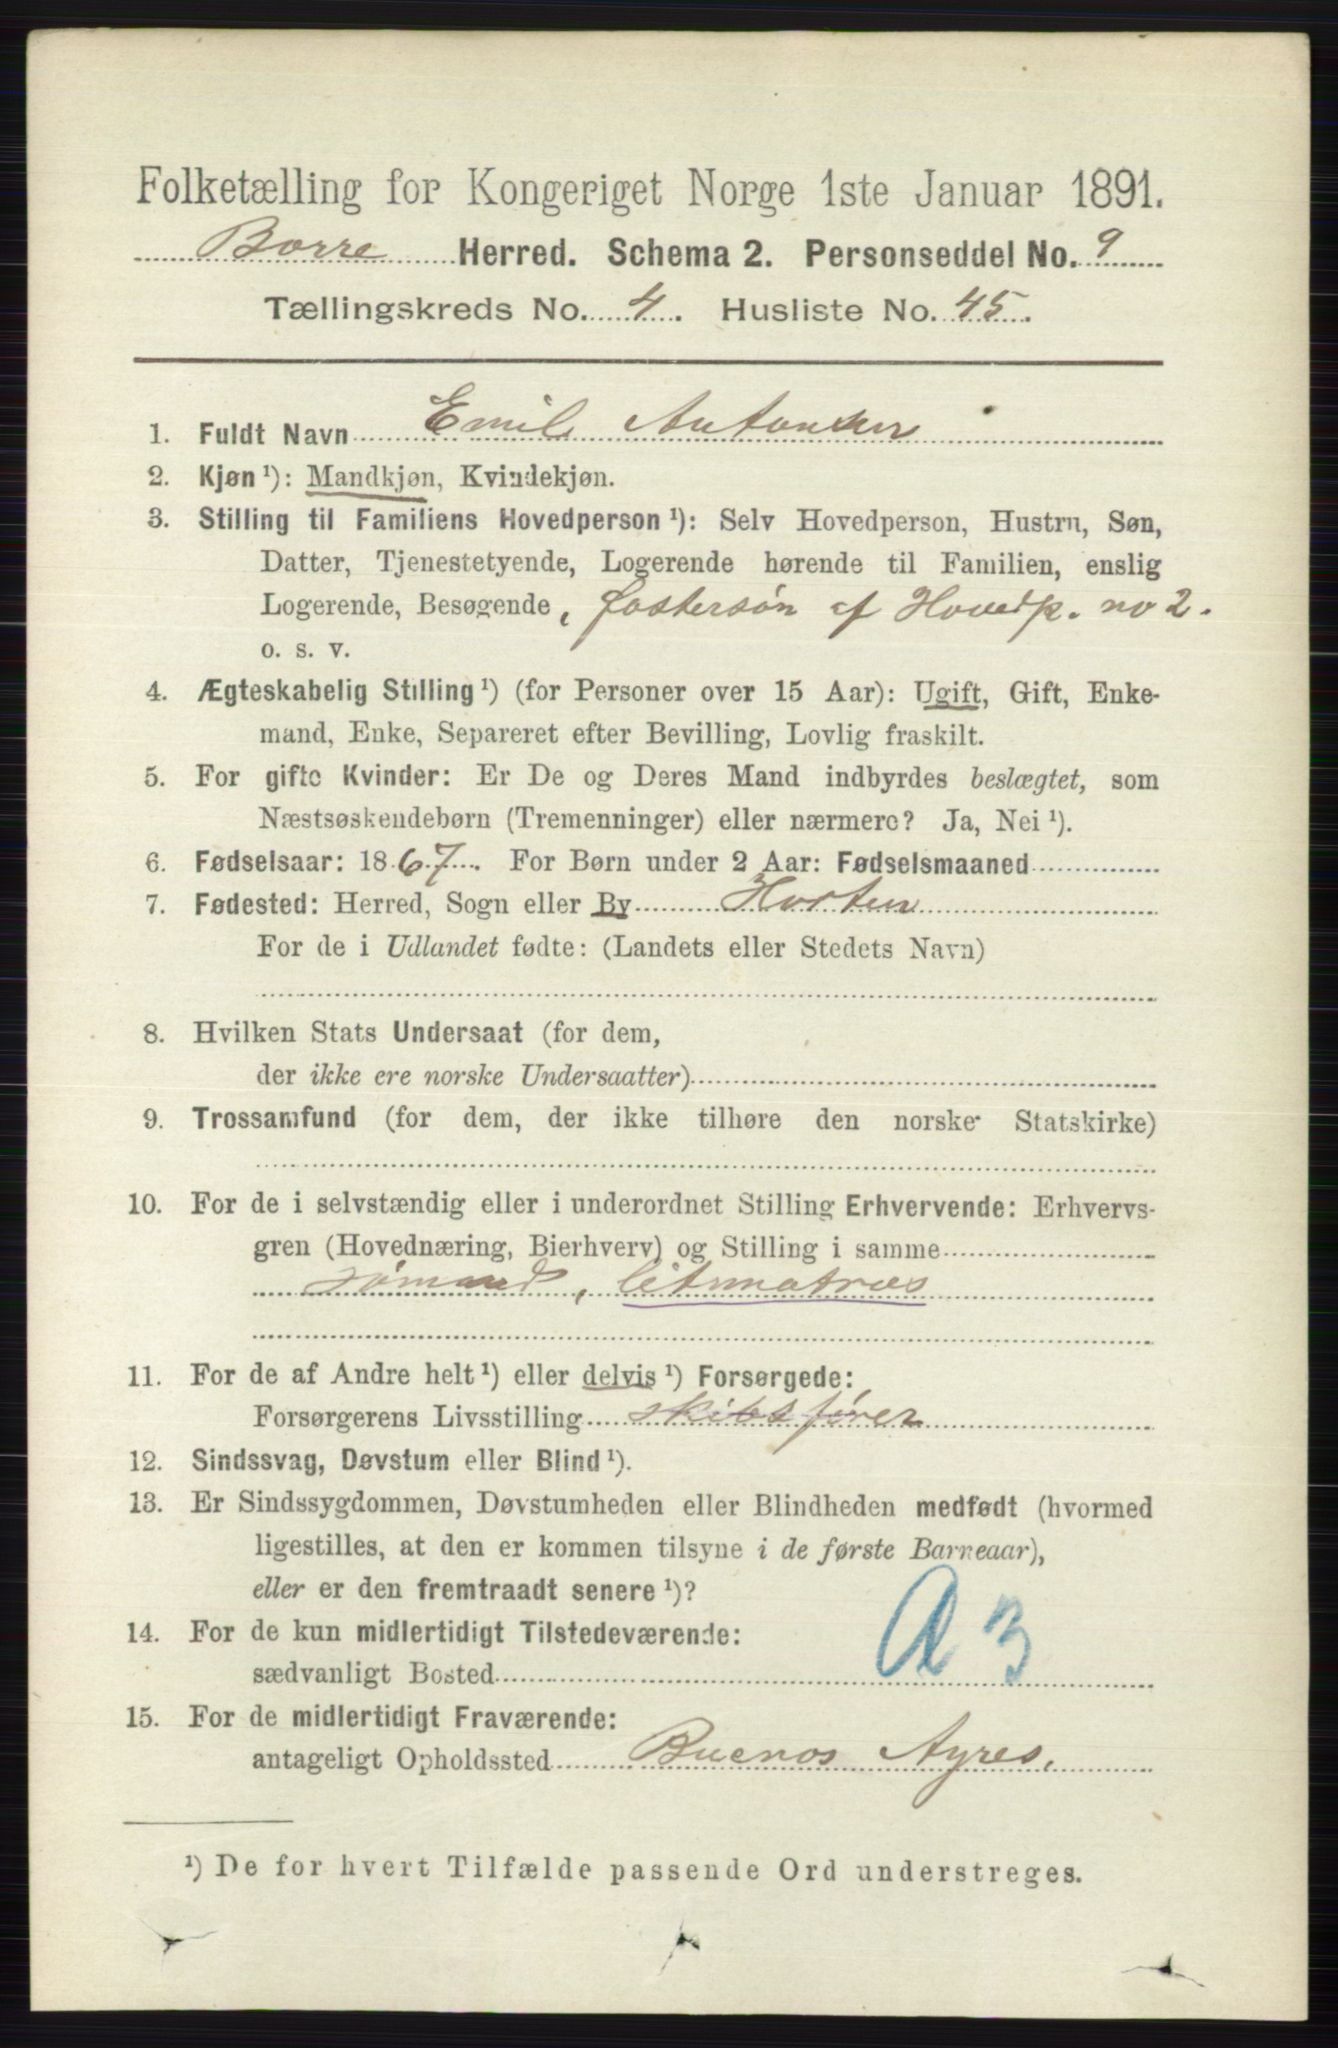 Folketælling for Kongeriget Norge 1ste Januar 1891.
Borre Herred. Schema 2. Personseddel No. 9
Tællingskreds No. 4. Husliste No. 45.
1. Fuldt Navn Emil Antonsen
2. Kjøn ¹): Mandkjøn, Kvindekjøn.
3. Stilling til Familiens Hovedperson ¹): Selv Hovedperson, Hustru, Søn,
Datter, Tjenestetyende, Logerende hørende til Familien, enslig
Logerende, Besøgende, fostersøn af Hovedp. no 2.
o. s. v.
4. Ægteskabelig Stilling ¹) (for Personer over 15 Aar): Ugift, Gift, Enke-
mand, Enke, Separeret efter Bevilling, Lovlig fraskilt.
5. For gifte Kvinder: Er De og Deres Mand indbyrdes beslægtet, som
Næstsøskendebørn (Tremenninger) eller nærmere? Ja, Nei ¹).
6. Fødselsaar: 1867. For Børn under 2 Aar: Fødselsmaaned
7. Fødested: Herred, Sogn eller By Horten
For de i Udlandet fødte: (Landets eller Stedets Navn)
8. Hvilken Stats Undersaat (for dem,
der ikke ere norske Undersaatter)
9. Trossamfund (for dem, der ikke tilhøre den norske Statskirke)
10. For de i selvstændig eller i underordnet Stilling Erhvervende: Erhvervs-
gren (Hovednæring, Bierhverv) og Stilling i samme
sømand, letmatros
11. For de af Andre helt ¹) eller delvis ¹) Forsørgede:
Forsørgerens Livsstilling skibsfører
12. Sindssvag, Døvstum eller Blind ¹).
13. Er Sindssygdommen, Døvstumheden eller Blindheden medfødt (hvormed
ligestilles, at den er kommen tilsyne i de første Barneaar),
eller er den fremtraadt senere ¹)?
A 3
14. For de kun midlertidigt Tilstedeværende:
sædvanligt Bosted
15. For de midlertidigt Fraværende:
antageligt Opholdssted Buenos Ayres.
¹) De for hvert Tilfælde passende Ord understreges.